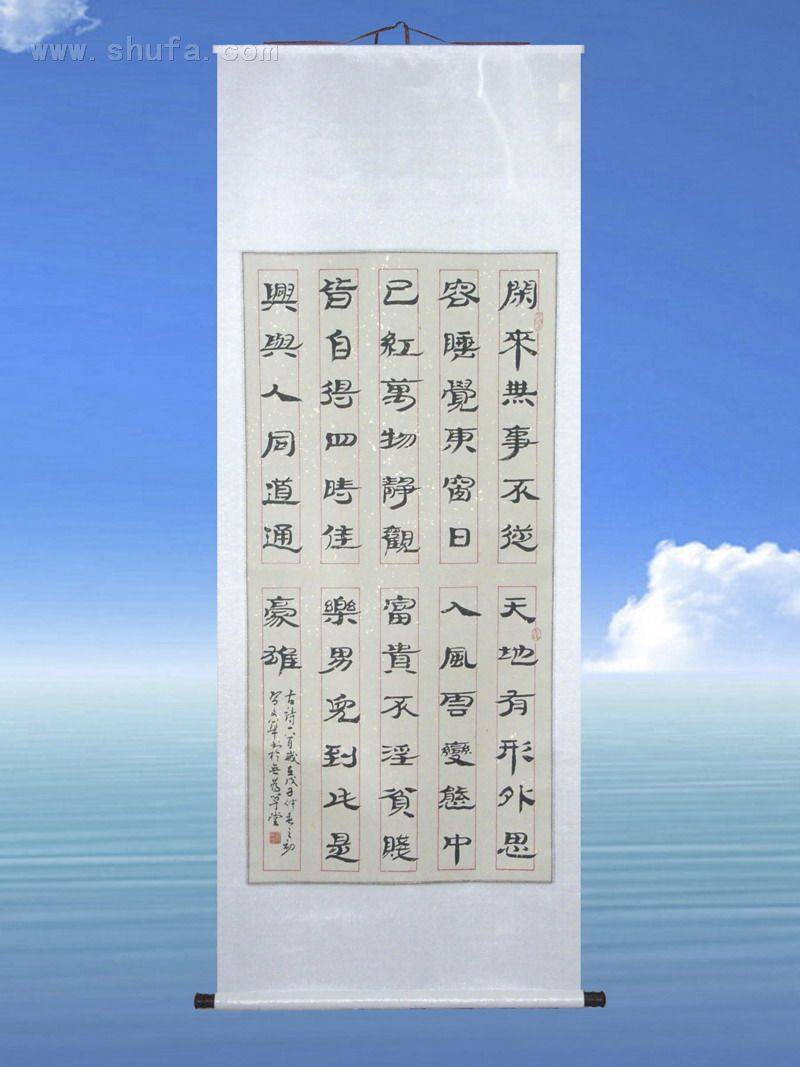 www.shufa.com
閑來無事不從
容睡覺東窗日
已紅萬物靜觀
皆自得四時佳
興與人同道通
天地有形外思
入風雲變態中
富貴不淫貧賤
樂男兒到此是
豪雄
古詩一首歲在戊子仲春之初
文華書於草堂